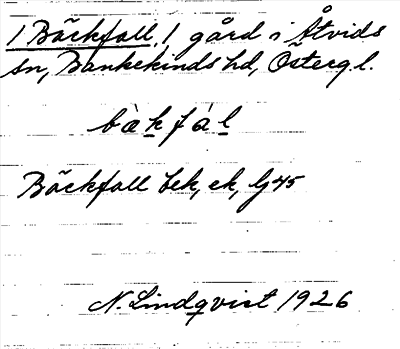 1 Bäckfall, 1 gård i Åtvids
sn, Bankekinds hd, Östergl.
bàkfàl
Bäckfall bek, ek, lj 45
N. Lindqvist 1926